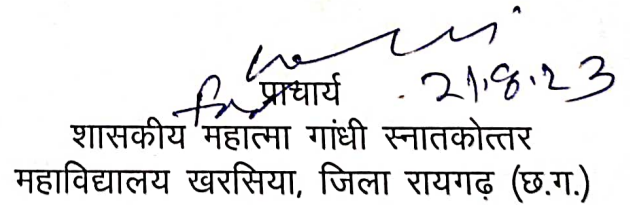 प्राचार्य 21.8.23
शासकीय महात्मा गांधी स्नातकोत्तर
महाविद्यालय खरसिया, जिला रायगढ़ (छ.ग.)